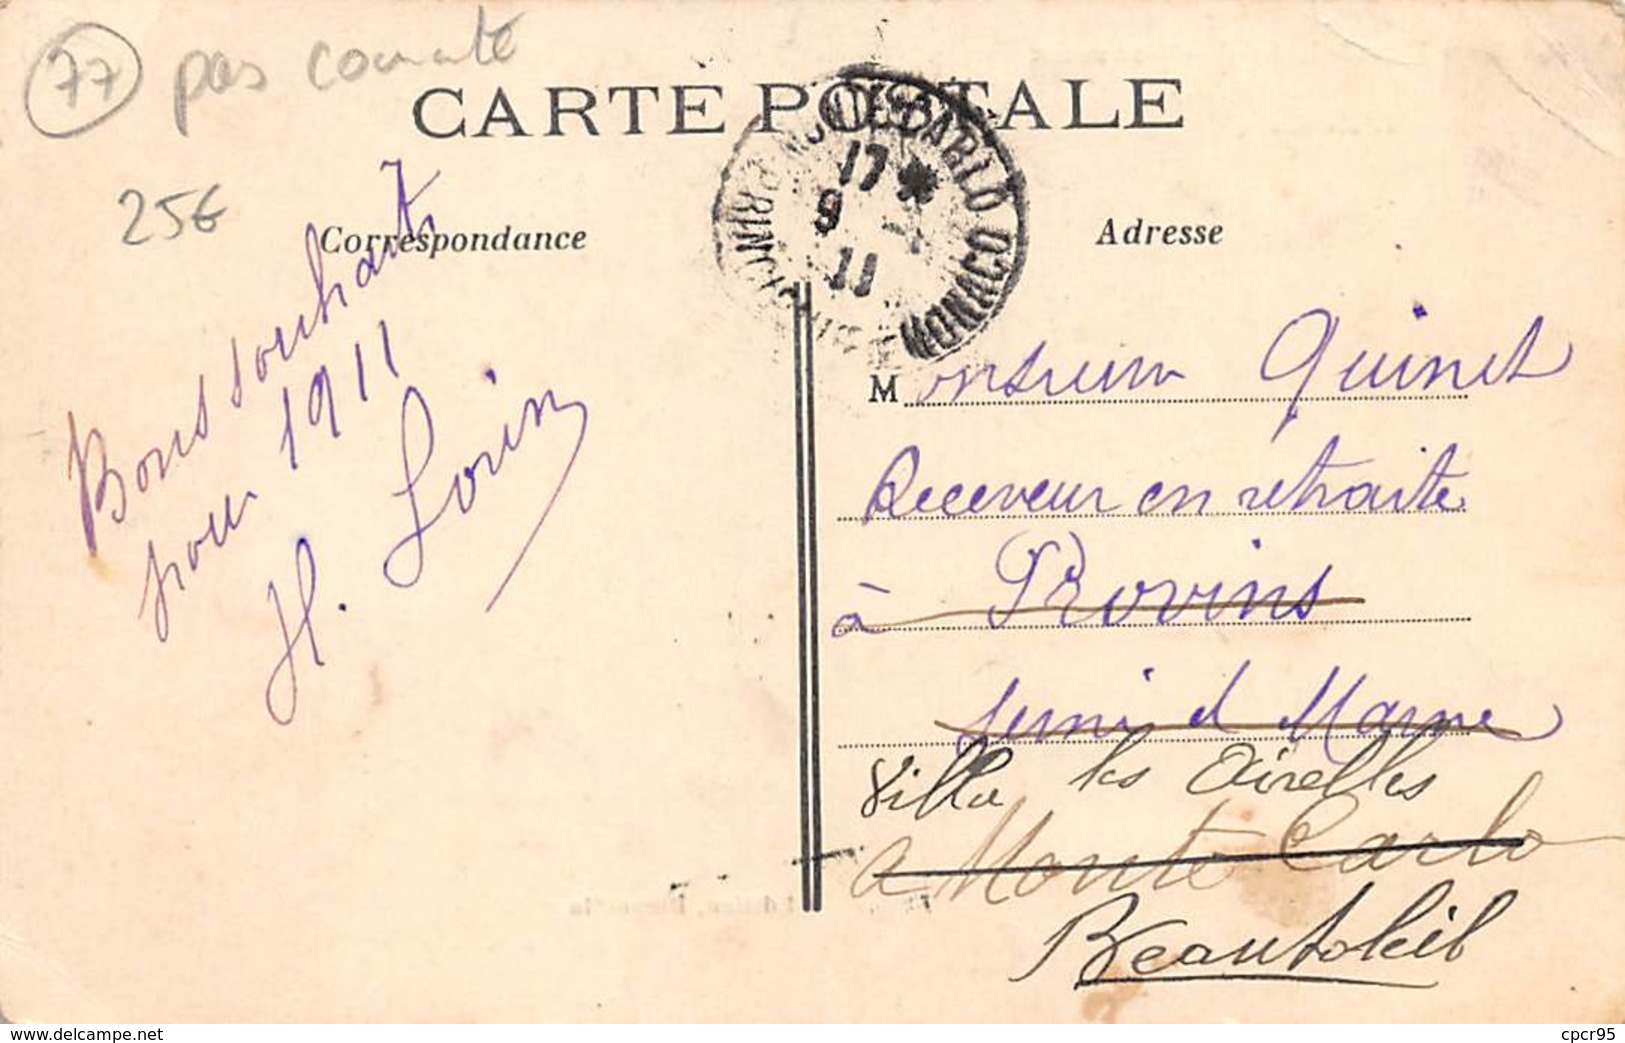 77 pas courante
CARTE POSTALE
25€
Correspondance
Adresse
MONTE CARLO
PRINCIPAUTE DE MONACO
17 *
9
11
Bons souhaits
pour 1911
H. Lorin
Monsieur Quinet
Receveur en retraite
à Provins
Seine et Marne
Villa les Airelles
a Monte Carlo
Beausoleil
www.delcampe.net
cpcr95